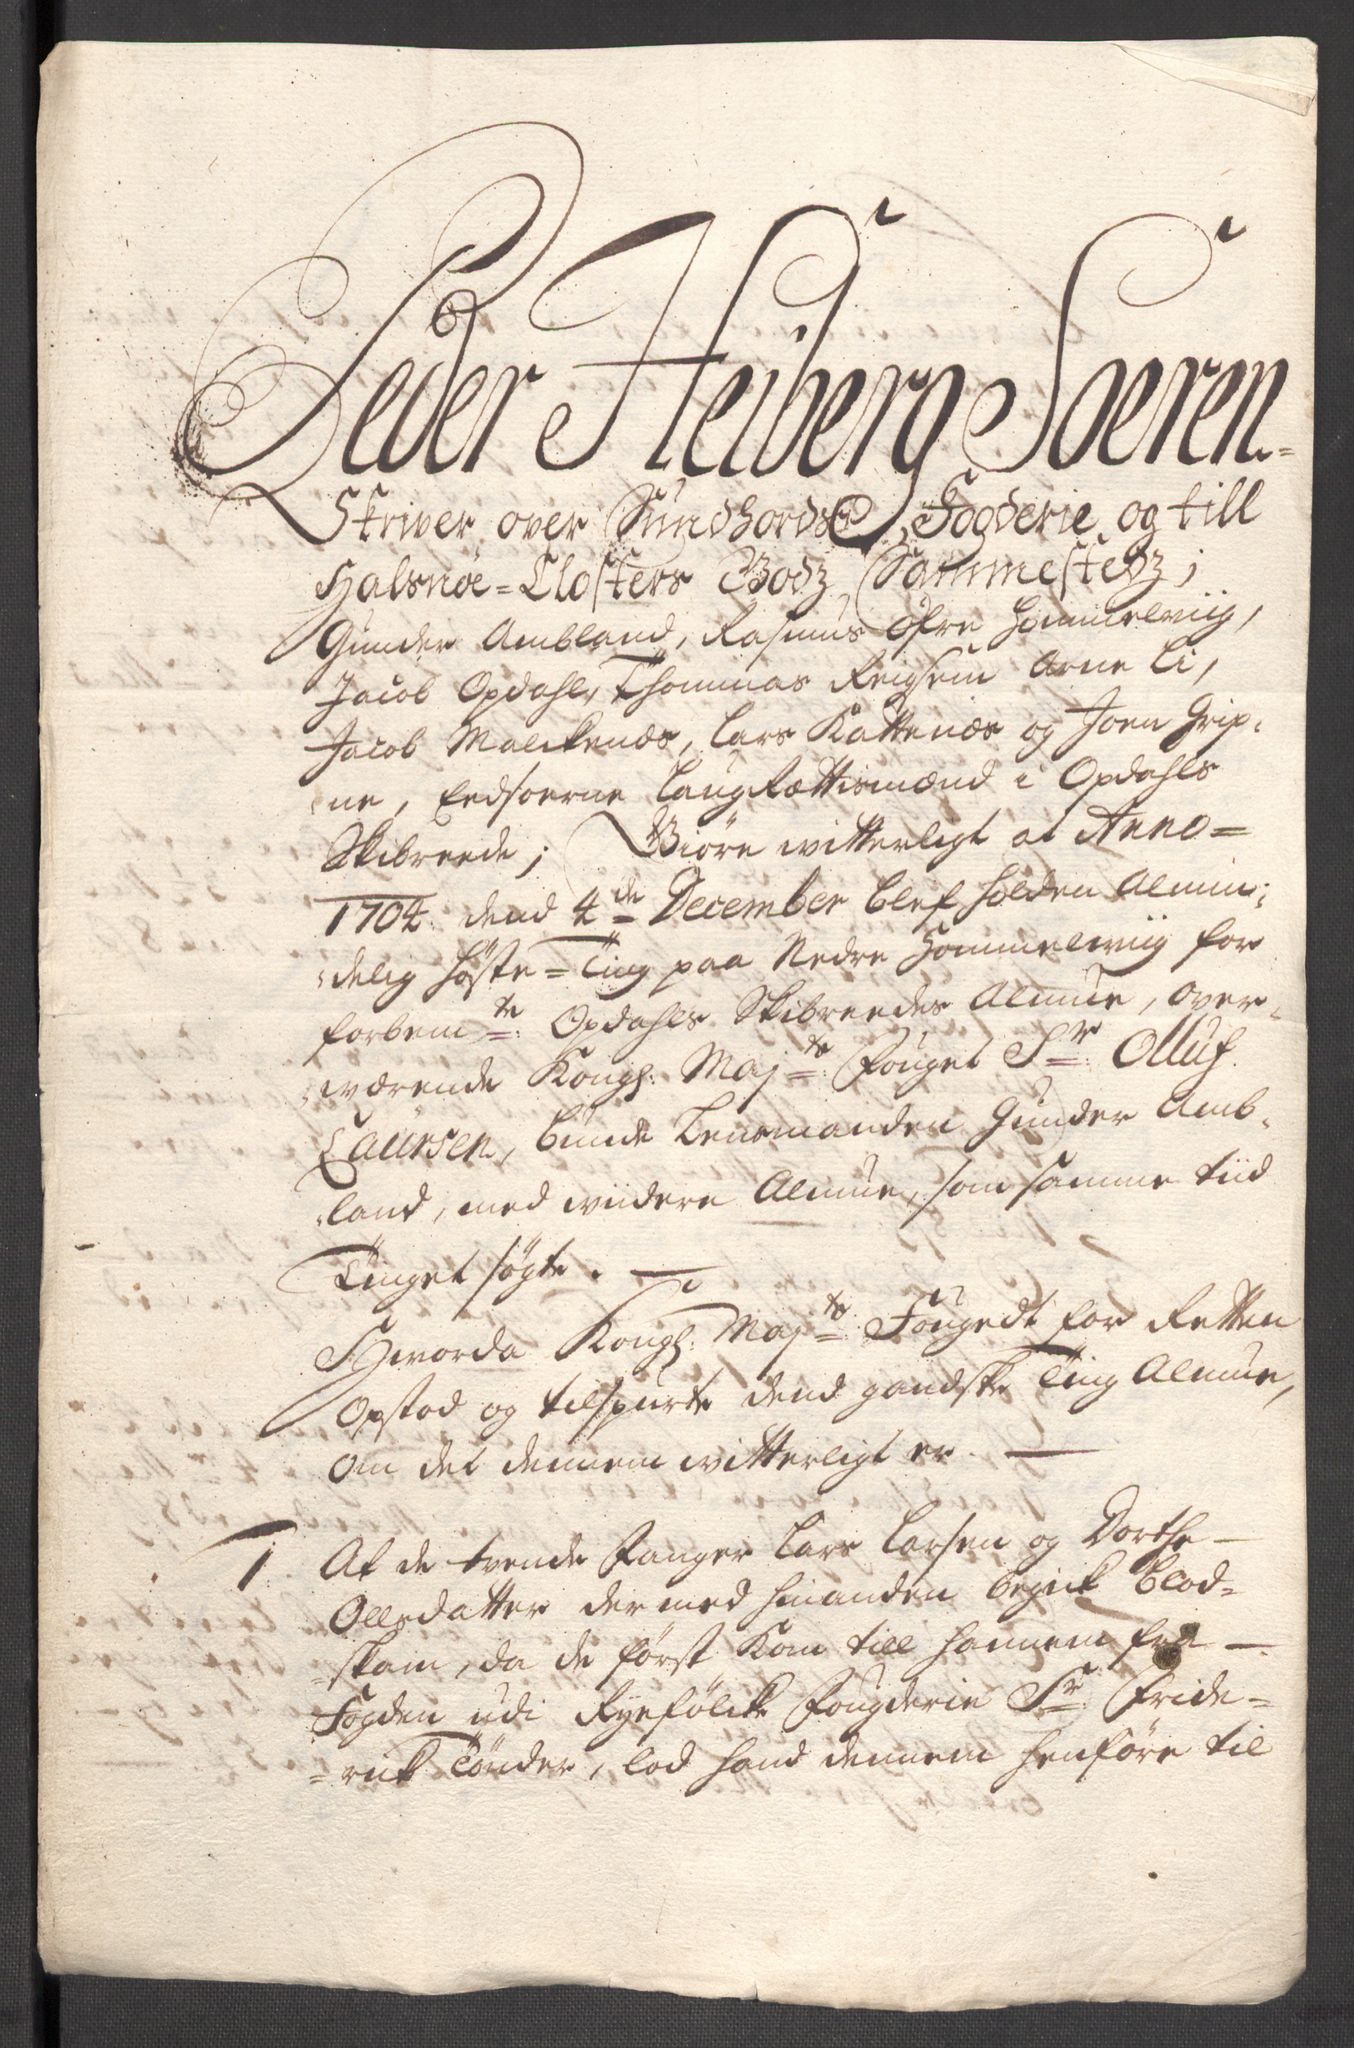 Peder Heiberg Soeren-
Skriver over Sundhords Fogderie og till
Halsnøe-Closters Godz Sammestedz;
Gunder Ambland, Rasmus Øfre Hommelviig,
Jacob Opdahl, Thommas Reigsem Arne Li,
Jacob Malckenæs, Lars Kattenæs og Joen Grip-
ne, Eedsoerne Laugrættismænd i Opdahls
Skibreede; Giøre witterligt at Anno-
1704 dend 4de December blef holden Almin-
delig Høste-Ting paa Nedre Hommelwiig for
forbemte Opdahls Skibreedes Almue, over-
wærende Kongl: Majts Fouget Sr Olluf
Laursen, bunde Lensmanden Gunder Amb-
land, med widere Almue, som samme tiid
Tinget søgte. —
Hworda Kongl: Majts Fougedt for Retten
Opstod og tilspurte dend gandske Ting Almue,
om det dennem witterligt er. —
1 At de tvende Fanger Lars Larsen og Dorthe
Ollsdatter der med hinanden begick blod-
skam, da de først kom till hannem fra
Fogden udi Ryefølcke Fougderie Sr Fride-
rick Tønder, lod hand dennem henføre til